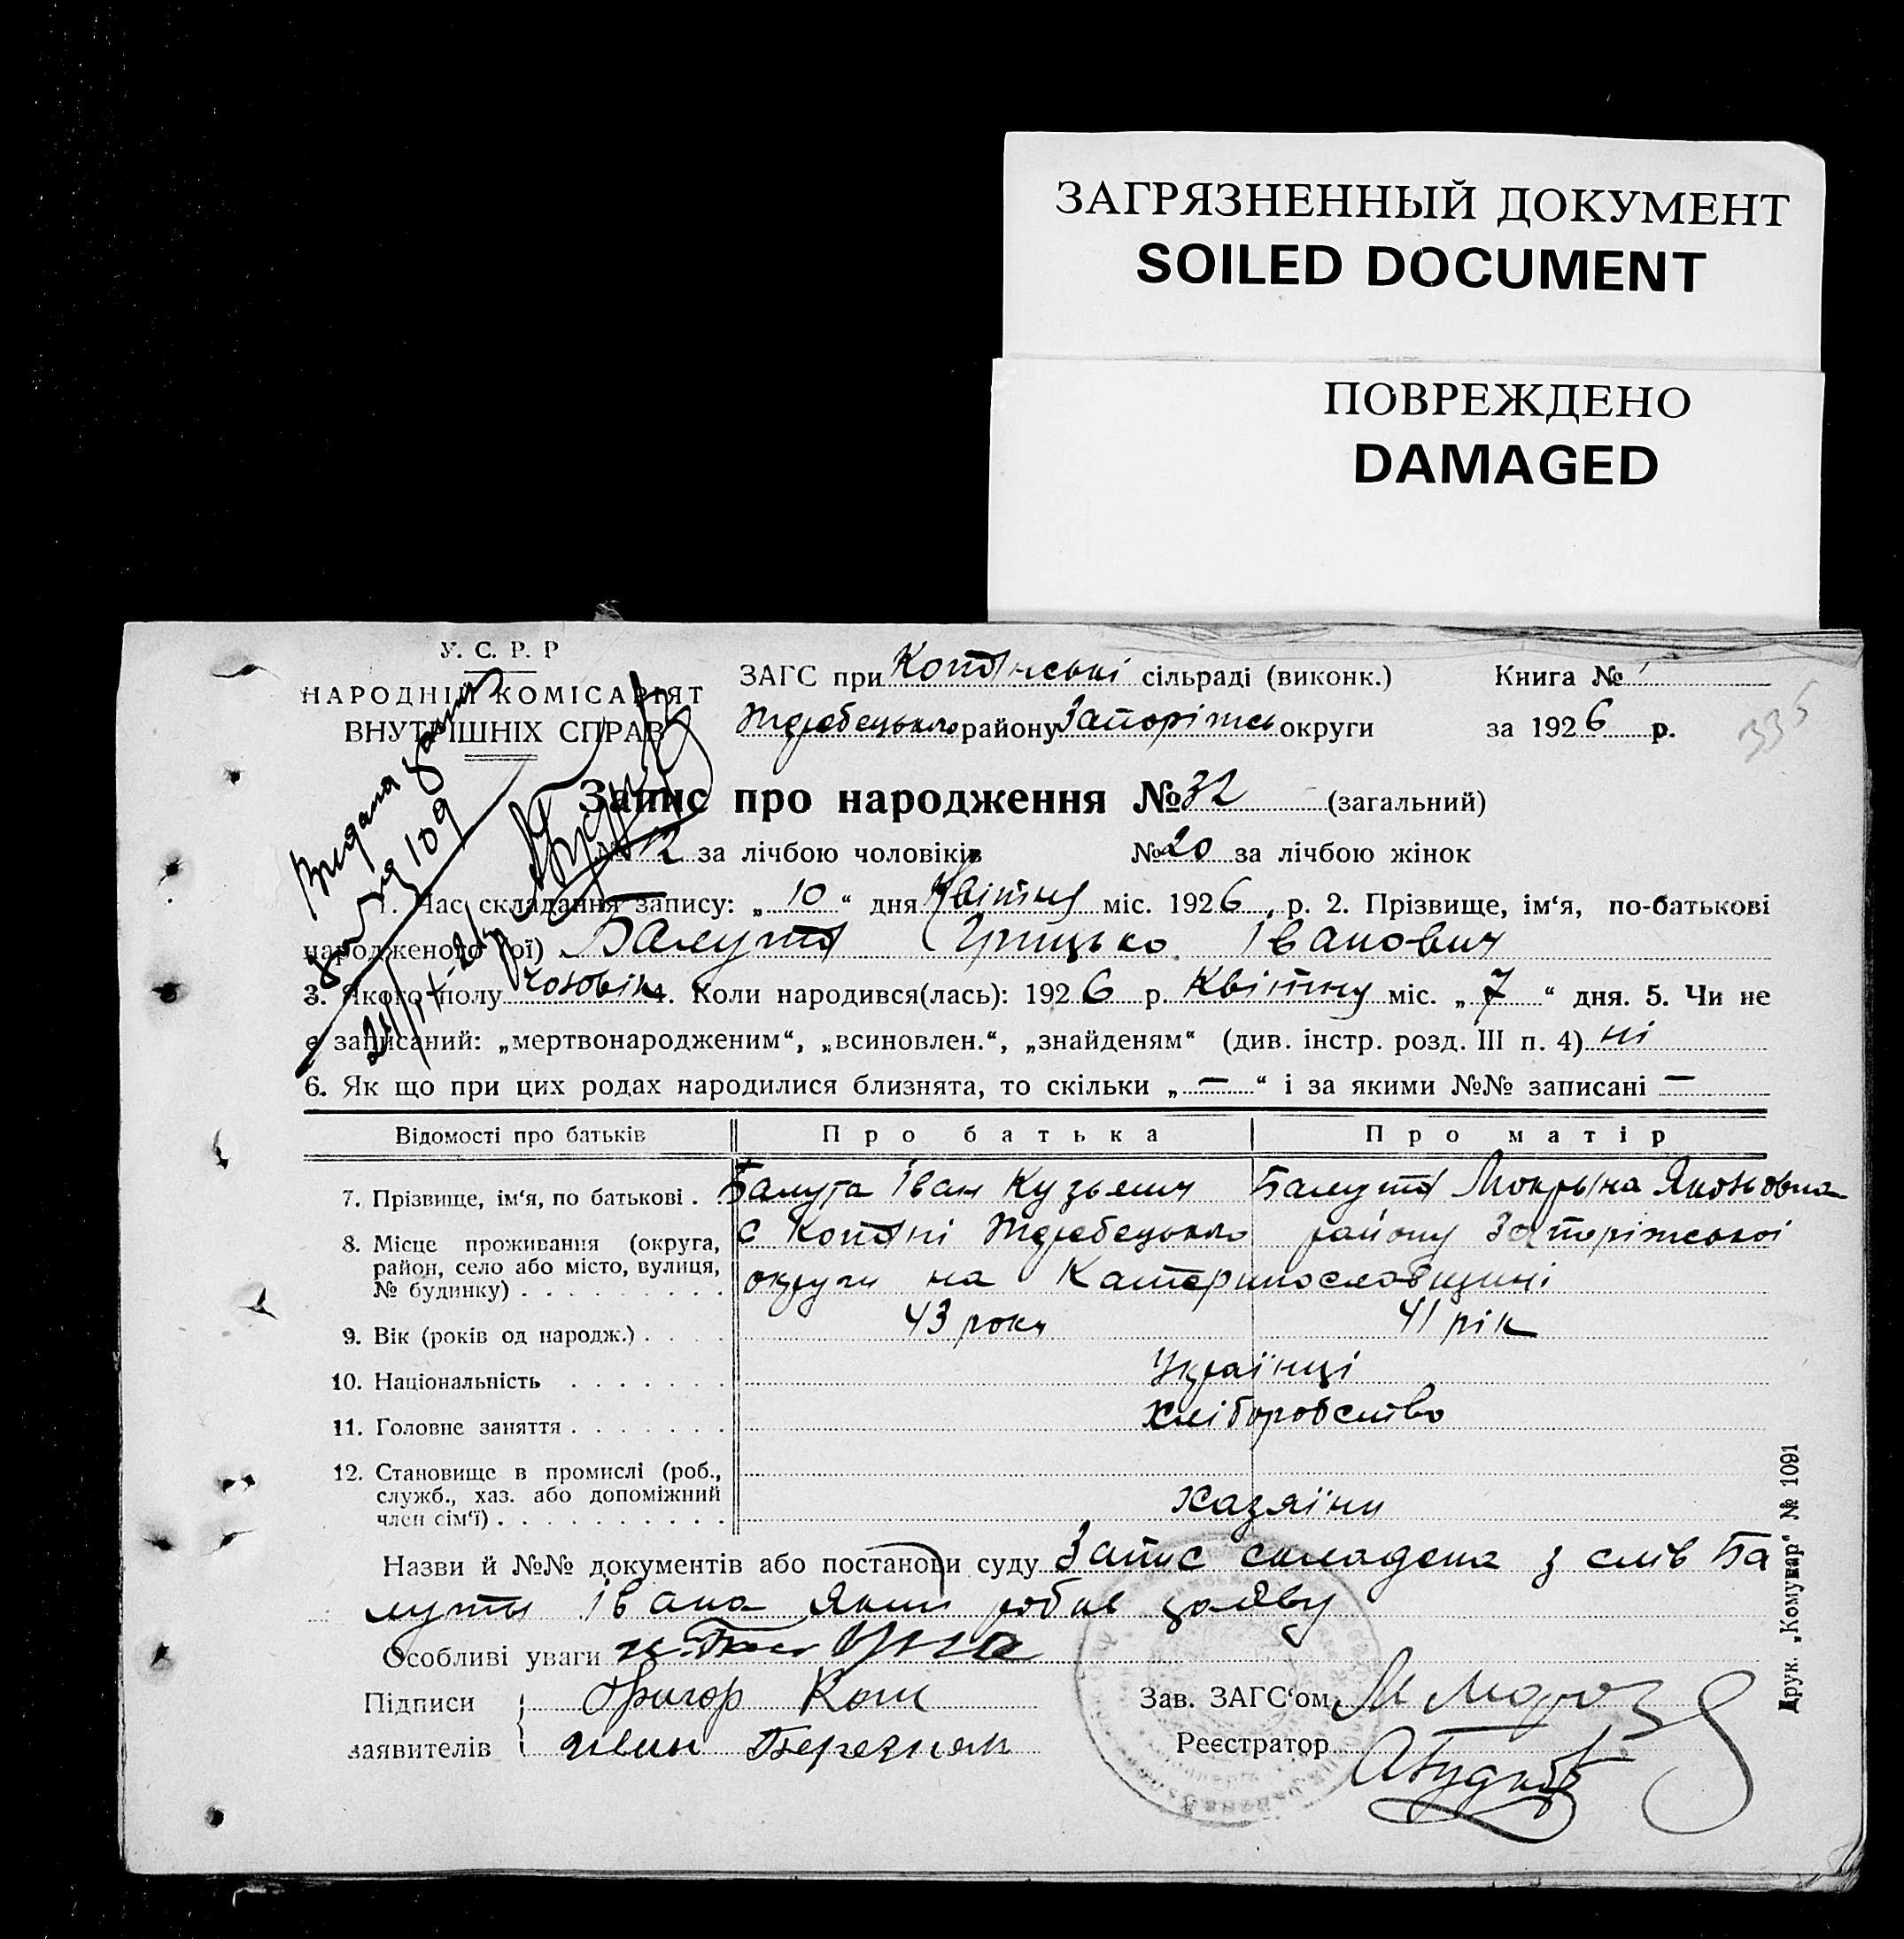 ЗАГРЯЗНЕННЫЙ ДОКУМЕНТ
SOILED DOCUMENT
ПОВРЕЖДЕНО
DAMAGED
У. С. Р. Р
НАРОДНІЙ КОМІСАРІЯТ
ВНУТРІШНІХ СПРАВ
ЗАГС при Копанські сільраді (виконк.) Книга №
Жеребецького району Запоріжсь округи за 1926 р.
335
Запис про народження № 32 (загальний)
№ 12 за лічбою чоловіків № 20 за лічбою жінок
Видана
109
1. Час складання запису: „10“ дня Квітня міс. 1926 р. 2. Прізвище, ім‘я, по-батькові
народженого (ої) Балута Грицько Іванович
3. Якого полу чоловік 4. Коли народився(лась): 1926 р. Квітня міс. „7“ дня. 5. Чи не
є записаний: „мертвонародженим“, „всиновлен.“, „знайденям“ (див. інстр. розд. III п. 4) ні
6. Як що при цих родах народилися близнята, то скільки „—“ і за якими №№ записані —
Відомості про батьків Про батька Про матір
7. Прізвище, ім‘я, по батькові . Балута Іван Кузьмич Балута Мокрына Якововна
8. Місце проживання (округа, район, село або місто, вулиця, № будинку) с Копані Жеребецького району Запоріжської
округи на Катеринославщині
9. Вік (років од народж.) 43 роки 41 рік
10. Національність Українці
11. Головне заняття Хліборобство
12. Становище в промислі (роб., служб., хаз. або допоміжний член сім‘ї) Хазяїни
Назви й №№ документів або постанови суду Запис складена з слів Ба
лути Івана Який робив заяву
Особливі уваги
Підписи Григор Кош Зав. ЗАГС‘ом М Мороз
заявителів Березняк Реєстратор
Друк. „Комунар“ № 1091